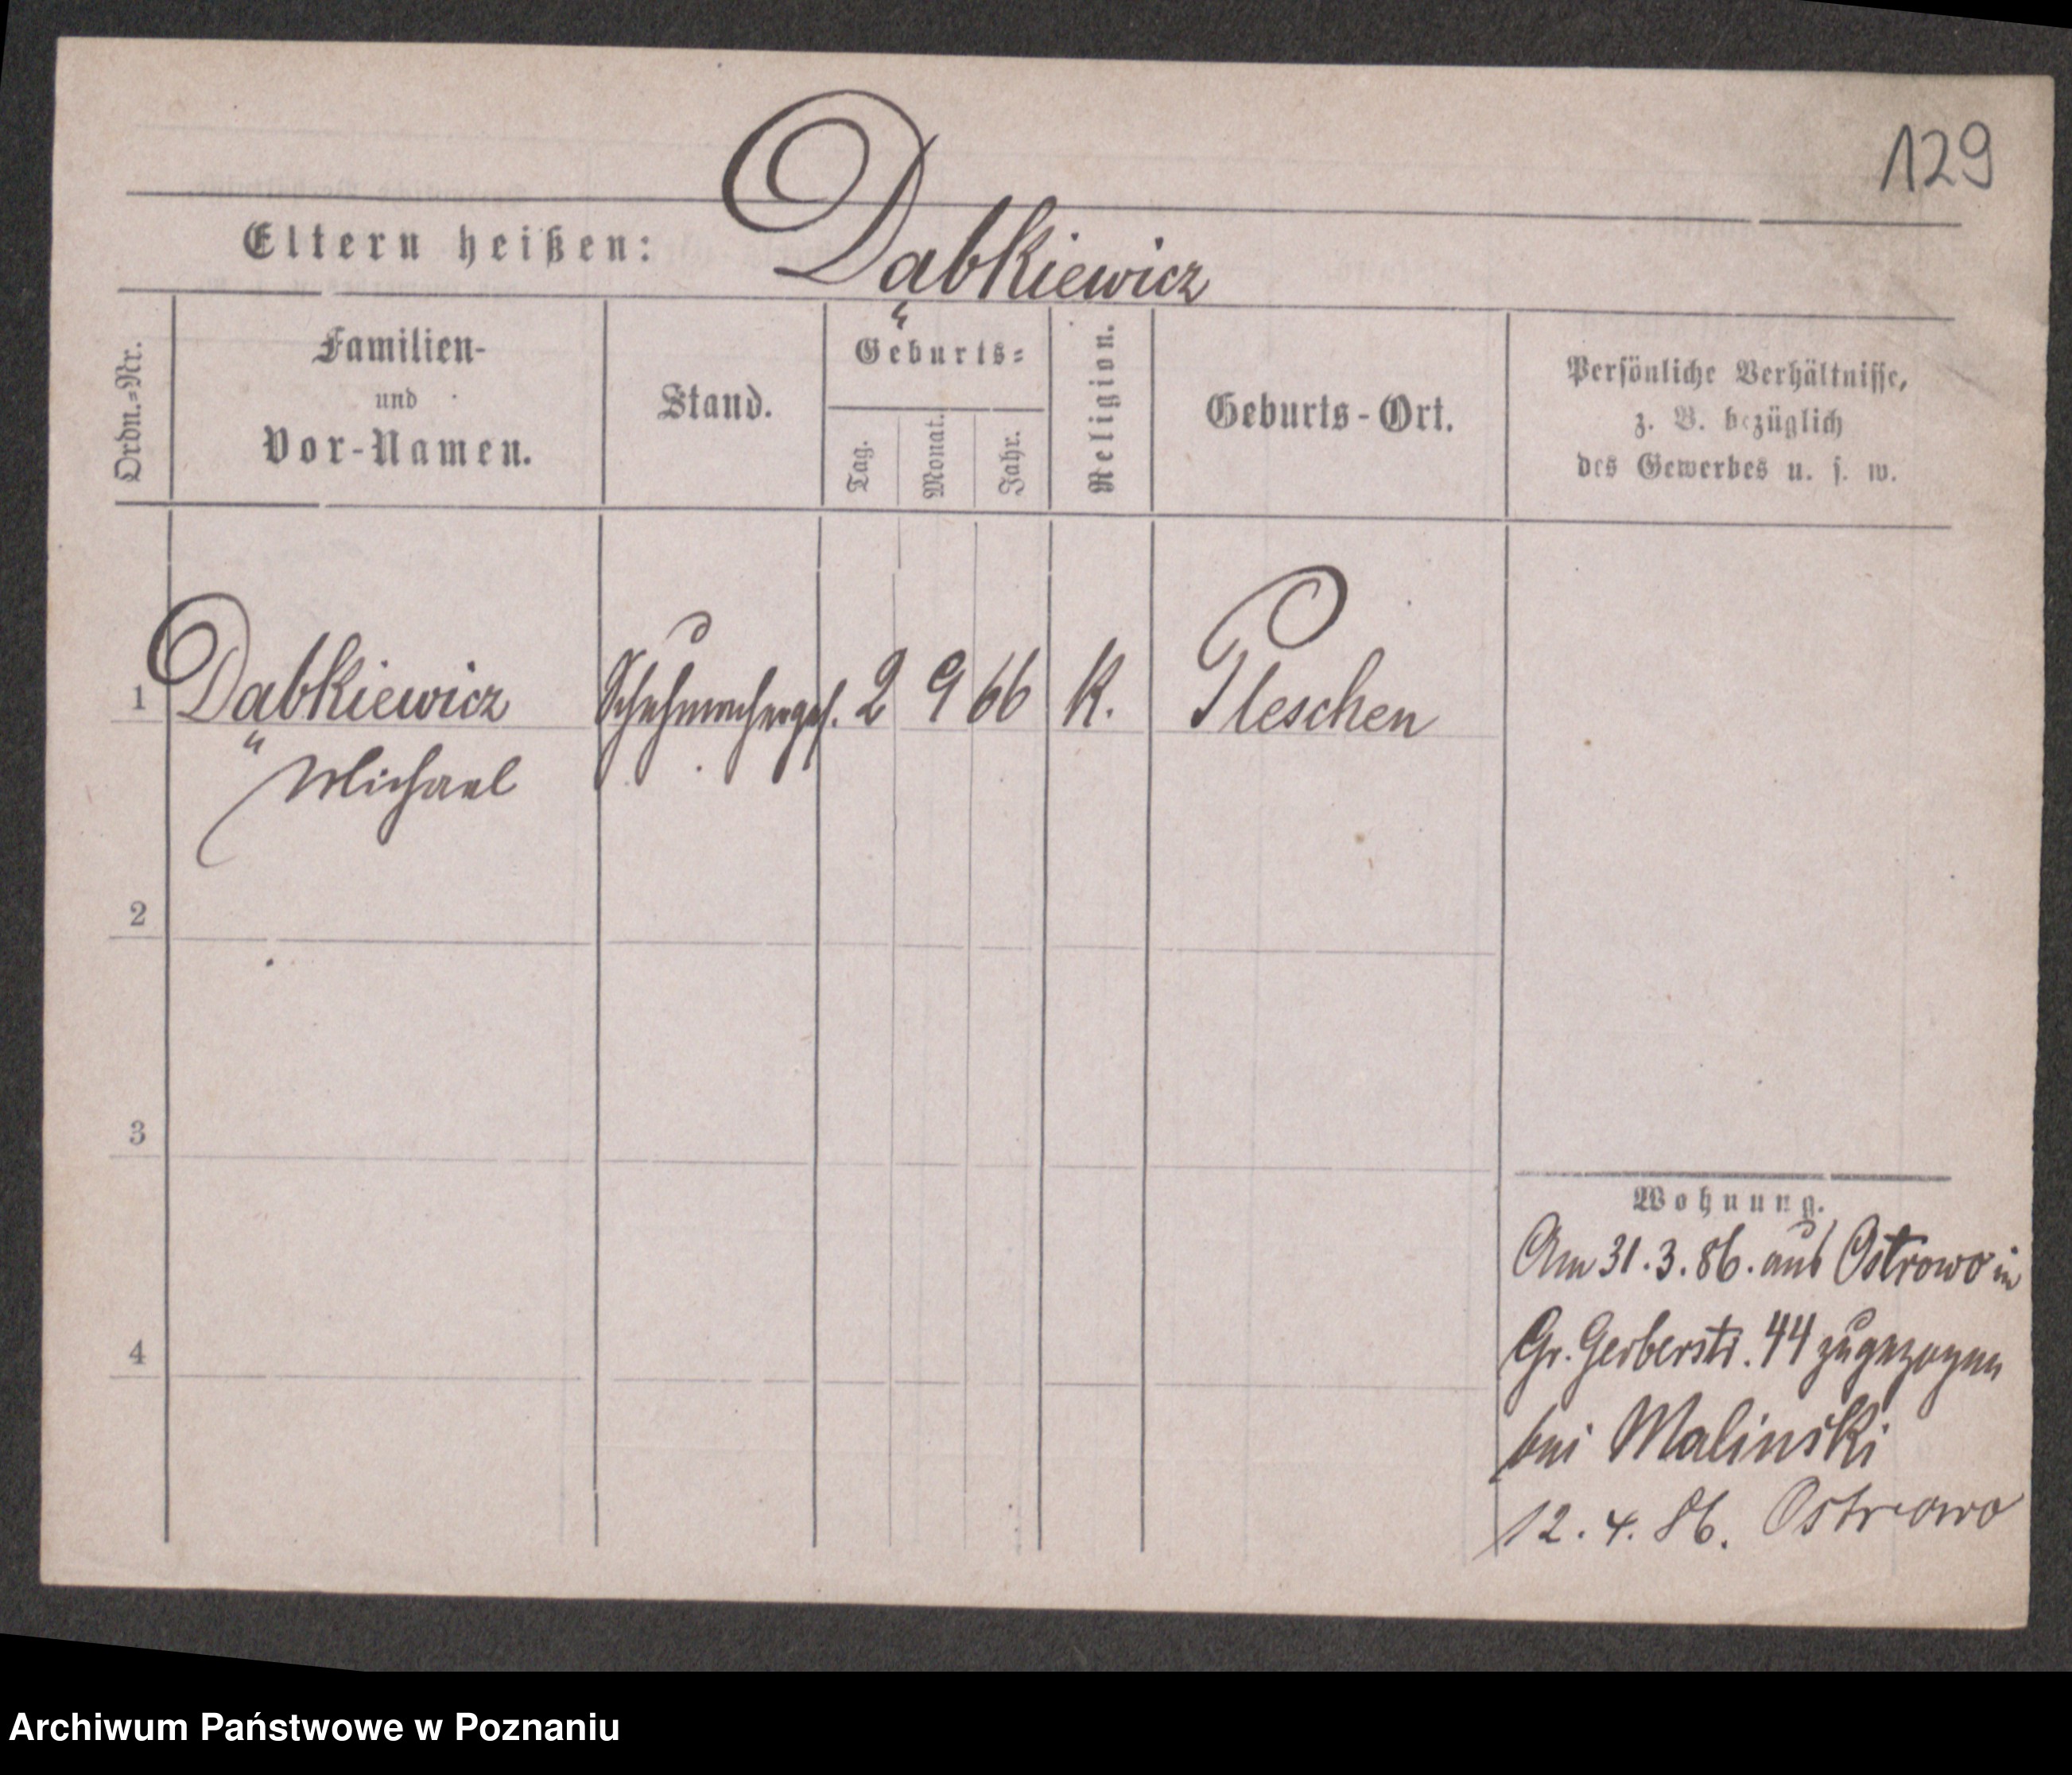 129
Eltern heißen:
Dąbkiewicz
Ordn.=Nr.
Familien-
und
Vor-Namen.
Stand.
Geburts=
Tag.
Monat.
Jahr.
Religion.
Geburts-Ort.
Persönliche Verhältnisse,
z. B. bezüglich
des Gewerbes u. s. w.
1 Dąbkiewicz Schuhmacherges. 2 9 66 K. Pleschen
Michael
2
3
4
Wohnung.
Am 31.3.86. aus Ostrowo in
Gr. Gerberstr. 44 zugezogen
bei Malinski
12.4.86. Ostrowo
Archiwum Państwowe w Poznaniu